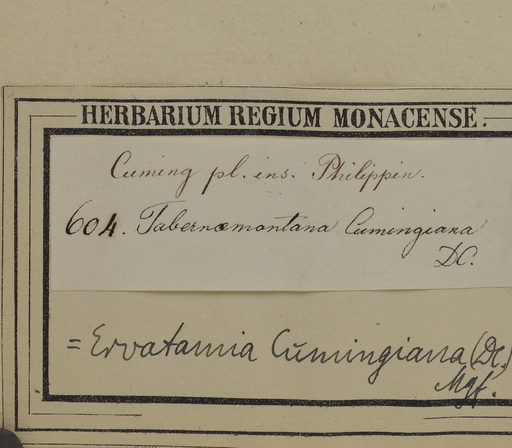 HERBARIUM REGIUM MONACENSE.
Cuming pl. ins. Philippin.
604. Tabernæmontana Cumingiana
DC.
= Ervatamia Cumingiana (DC.)
Mgf.